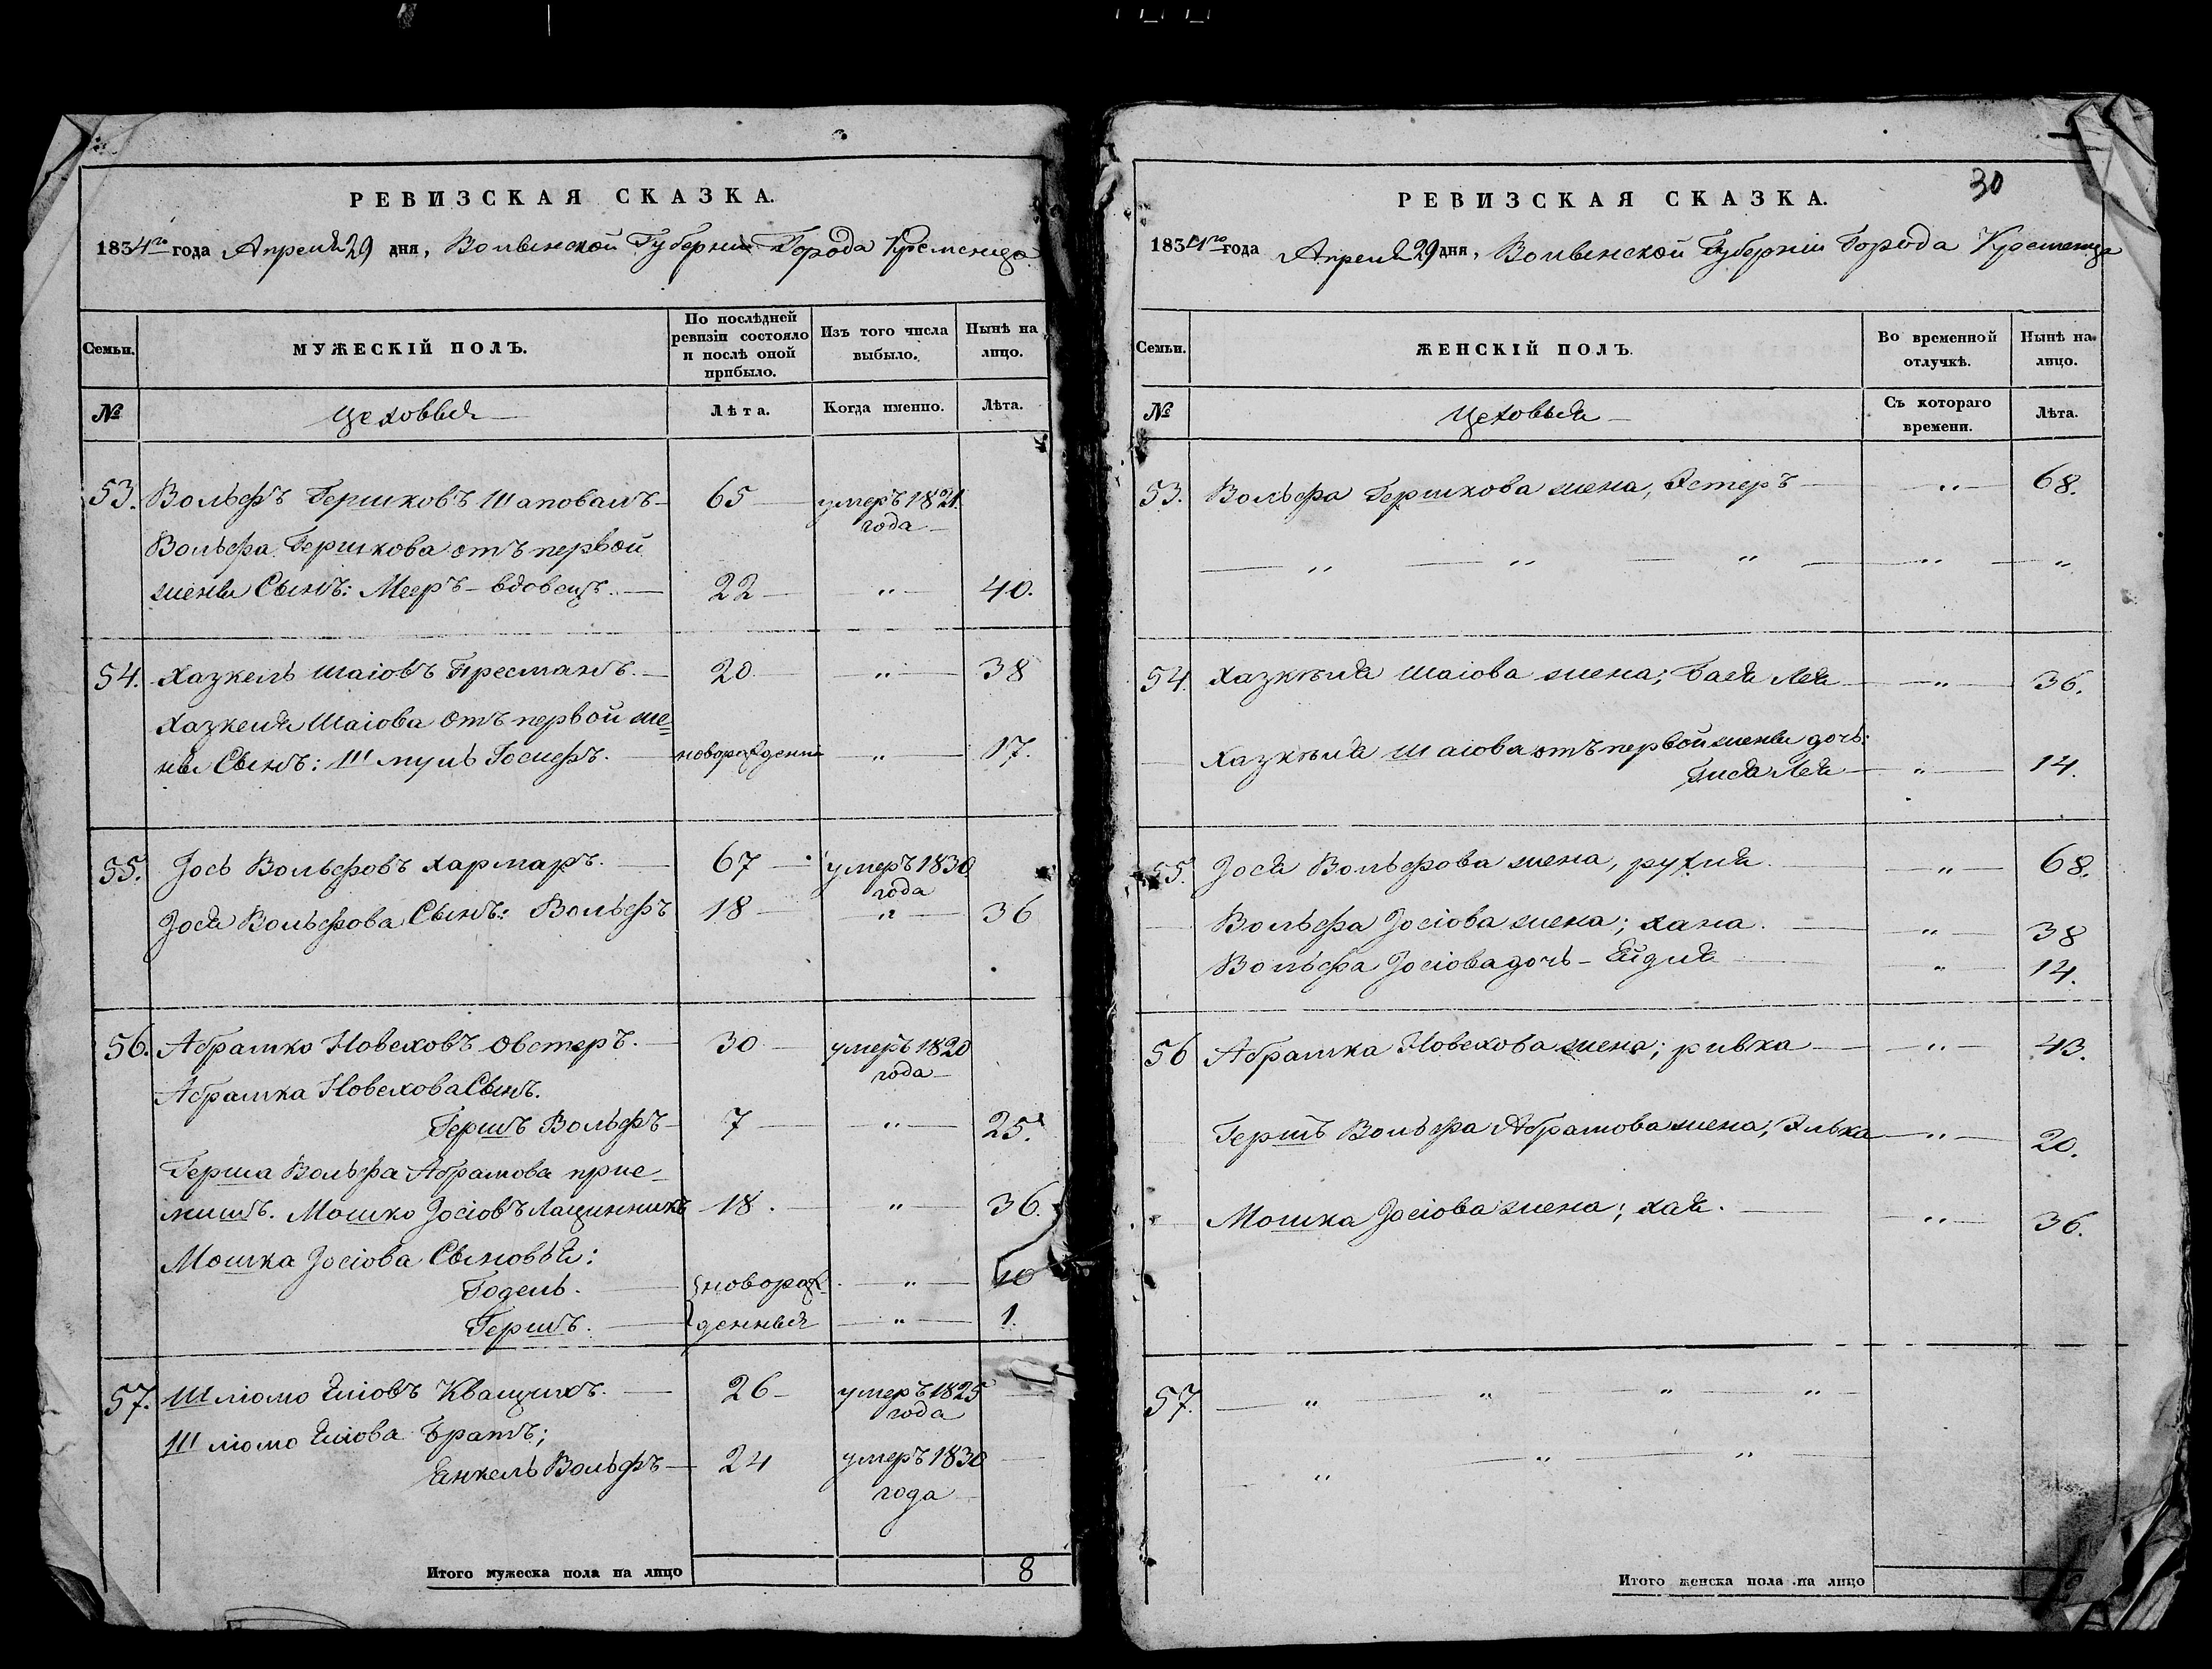 РЕВИЗСКАЯ СКАЗКА.
1834го года Апреля 29 дня, Волынской Губернии Города Кременца
Семьи.
МУЖЕСКІЙ ПОЛЪ.
По послѣдней ревизіи состояло и послѣ оной прибыло.
Изъ того числа выбыло.
Нынѣ на лицо.
№
Цеховыя
Лѣта.
Когда именно.
Лѣта.
53. Вольфъ Гершковъ Шаповалъ 65 умеръ 1821 года
Вольфа Гершкова отъ первой
жены Сынъ: Мееръ - вдовецъ. 22 " 40.
54. Хазкель Шаіовъ Пресманъ. 20 " 38
Хазкеля Шаіова отъ первой же=
ны Сынъ: Шмуль Іосифъ. новорожденны " 17.
55. Іось Вольфовъ Хармаръ. 67 умеръ 1830 года
Іося Вольфова Сынъ: Вольфъ 18 " 36
56. Абрамко Новеховъ Овстеръ. 30 умеръ 1820 года
Абрамка Новехова Сынъ.
Гершъ Вольфъ 7 " 25.
Герша Вольфа Абрамова прие-
мишъ. Мошко Іосіовъ Лащинникъ 18. " 36.
Мошка Іосіова Сыновья:
Годель. новорож " 10
Гершъ. денныя " 1.
57. Шліомо Еліовъ Кващикъ. 26 умеръ 1825 года
Шліомо Еліова Братъ;
Янкель Вольфъ 24 умеръ 1830
года
Итого мужеска пола на лицо 8
30
РЕВИЗСКАЯ СКАЗКА.
1834го года Апреля 29 дня, Волынской Губерніи Города Кременца
Семьи.
ЖЕНСКІЙ ПОЛЪ.
Во временной отлучкѣ.
Нынѣ на лицо.
№
Цеховыя
Съ котораго времени.
Лѣта.
53. Вольфа Гершкова жена, Эстеръ " 68.
" " " " "
54. Хазкѣля Шаіова жена; Бася Лея " 36.
Хазкѣля Шаіова отъ первой жены дочь:
Гися Лея " 14.
55. Іося Вольфова жена, рухля. " 68.
Вольфа Іосіова жена; хана. " 38
Вольфа Іосіова дочь - Ейдля " 14.
56 Абрамка Новехова жена; ривка " 43.
Гершъ Вольфа Абрамова жена; Элька " 20.
Мошка Іосіова жена; хая. " 36.
57. " " " "
" " "
Итого женска пола на лицо